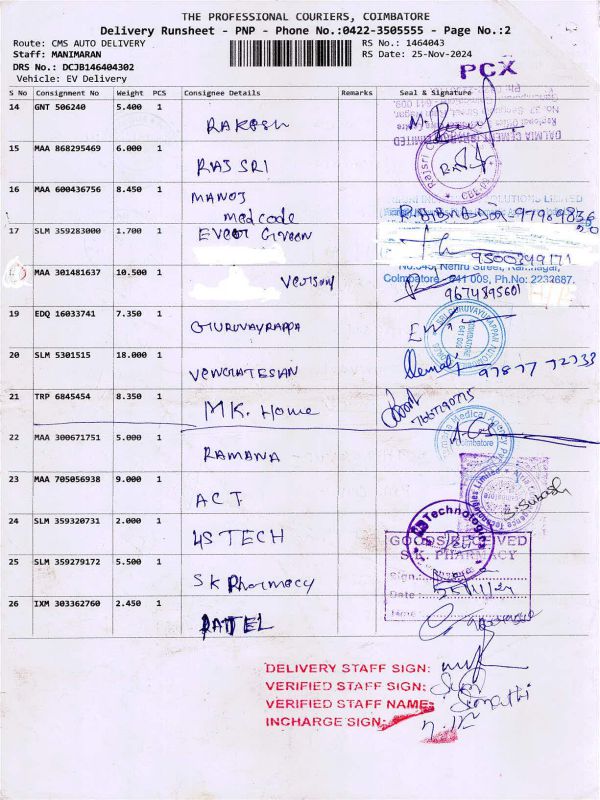 THE PROFESSIONAL COURIERS, COIMBATORE
Delivery Runsheet - PNP - Phone No.:0422-3505555 - Page No.:2
Route: CMS AUTO DELIVERY RS No.: 1464043
Staff: MANIMARAN RS Date: 25-Nov-2024
DRS No.: DCJB146404302
Vehicle: EV Delivery
PCX
S No Consignment No Weight PCS Consignee Details Remarks Seal & Signature
14 GNT 506240 5.400 1 RAKESH
DALMIA CEMENT LIMITED
15 MAA 868295469 6.000 1 RAJ SRI
16 MAA 600436756 8.450 1 MANOJ
medcode
17 SLM 359283000 1.700 1 EVEOT GIVEEN
9500349171
18 MAA 301481637 10.500 1
No.545, Nehru Street, Ramnagar,
Coimbatore - 641 009, Ph.No: 2232687.
9674895601
19 EDQ 16033741 7.350 1 GURUVAYRAPPA
SRI GURUVAYURAPPAN
20 SLM 5301515 18.000 1 VENGRATESIAN
97877 72733
21 TRP 6845454 8.350 1 MK. Home
22 MAA 300671751 5.000 1 RAMANA
Coimbatore
23 MAA 705056938 9.000 1 ACT
S. Subash
24 SLM 359320731 2.000 1 US TECH
Technologies
GOODS RECEIVED
S.K. PHARMACY
25 SLM 359279172 5.500 1 SK Pharmacy
Sign
Date: 25/11/24
Time:
26 IXM 303362760 2.450 1 PATTEL
DELIVERY STAFF SIGN:
VERIFIED STAFF SIGN:
VERIFIED STAFF NAME:
INCHARGE SIGN: